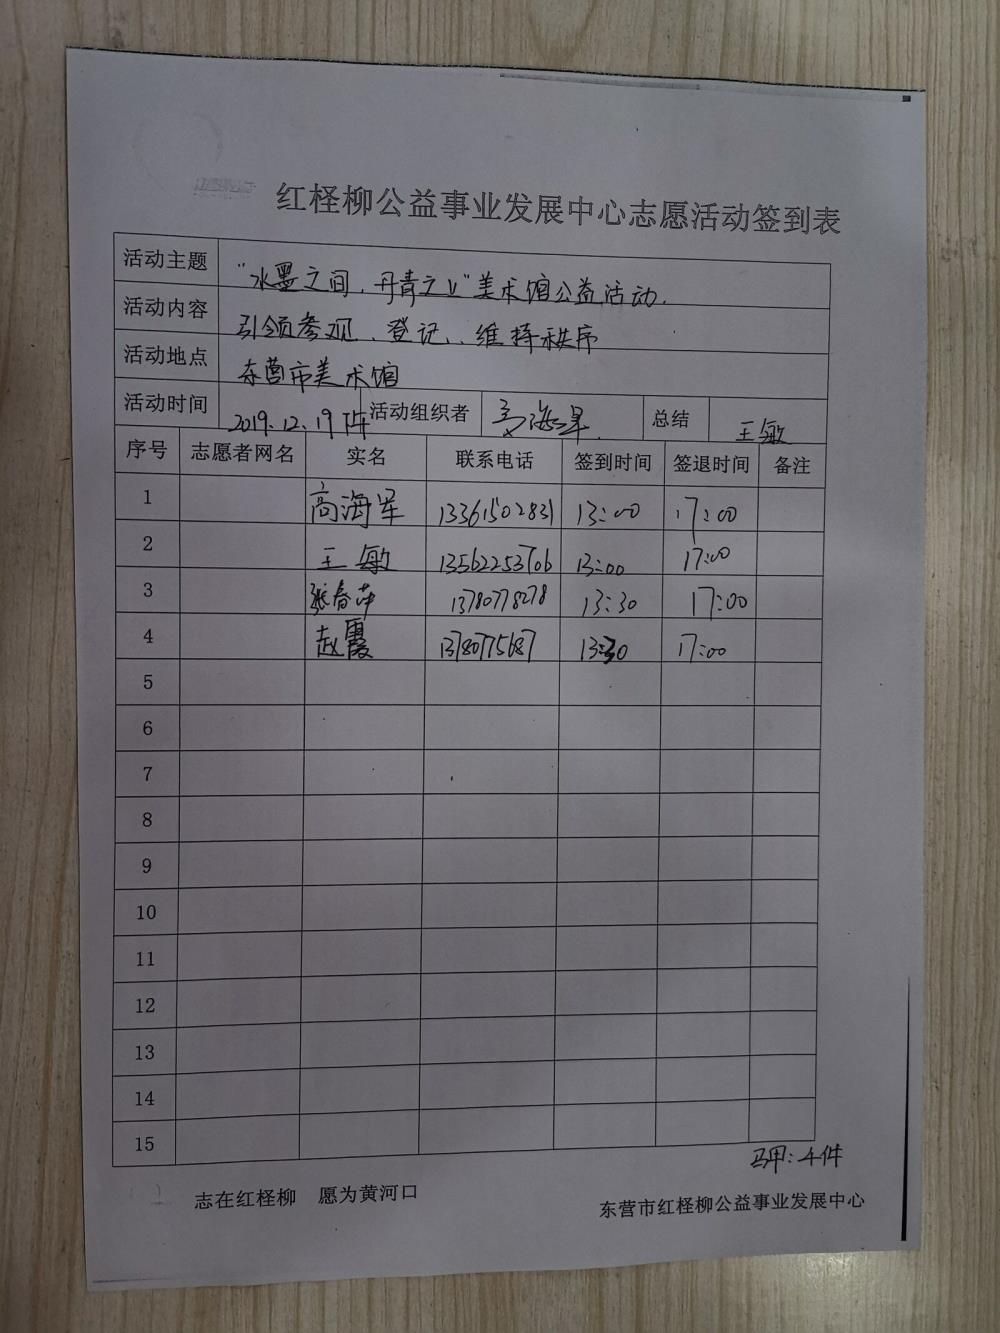 红柽柳公益事业发展中心志愿活动签到表
活动主题 “水墨之间，丹青之上”美术馆公益活动.
活动内容 引领参观、登记、维持秩序
活动地点 东营市美术馆
活动时间 2019.12.19下午 活动组织者 高海军 总结 王敏
序号 志愿者网名 实名 联系电话 签到时间 签退时间 备注
1 高海军 13361502831 13:00 17:00
2 王敏 13562253706 13:00 17:00
3 张春萍 13780778278 13:30 17:00
4 赵霞 13780775687 13:30 17:00
5
6
7
8
9
10
11
12
13
14
15
马甲：4件
志在红柽柳 愿为黄河口
东营市红柽柳公益事业发展中心